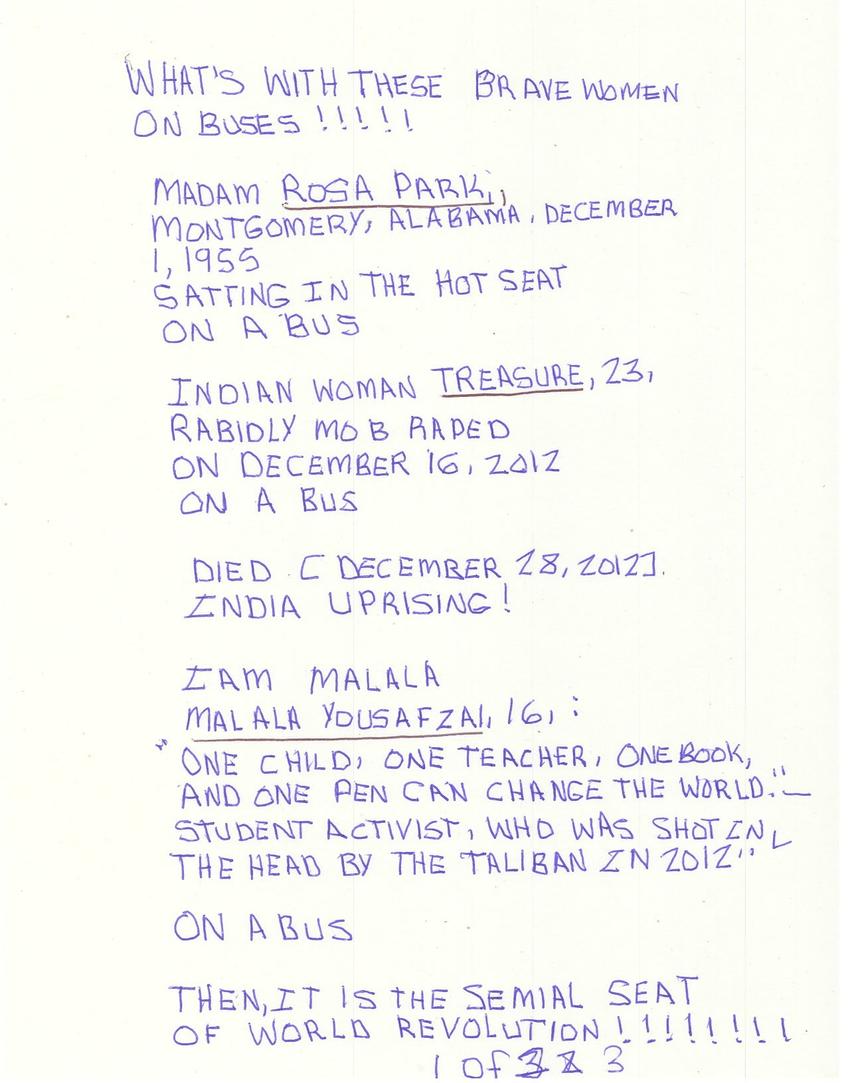 WHAT'S WITH THESE BRAVE WOMEN
ON BUSES !!!!!
MADAM ROSA PARK,,
MONTGOMERY, ALABAMA, DECEMBER
1, 1955
SATTING IN THE HOT SEAT
ON A BUS
INDIAN WOMAN TREASURE, 23,
RABIDLY MOB RAPED
ON DECEMBER 16, 2012
ON A BUS
DIED [DECEMBER 28, 2012].
INDIA UPRISING!
I AM MALALA
MALALA YOUSAFZAI, 16, :
"ONE CHILD, ONE TEACHER, ONE BOOK,
AND ONE PEN CAN CHANGE THE WORLD." —
STUDENT ACTIVIST, WHO WAS SHOT IN
THE HEAD BY THE TALIBAN IN 2012"
ON A BUS
THEN, IT IS THE SEMIAL SEAT
OF WORLD REVOLUTION !!!!!!!!!
1 OF 3